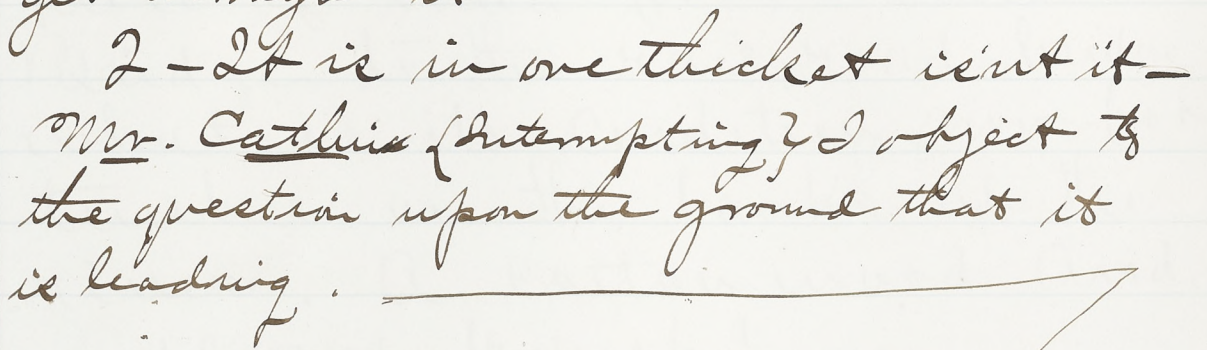 Q - It is in one thicket isn't it -
Mr. Catlin {Interrupting} I object to
the question upon the ground that it
is leading.